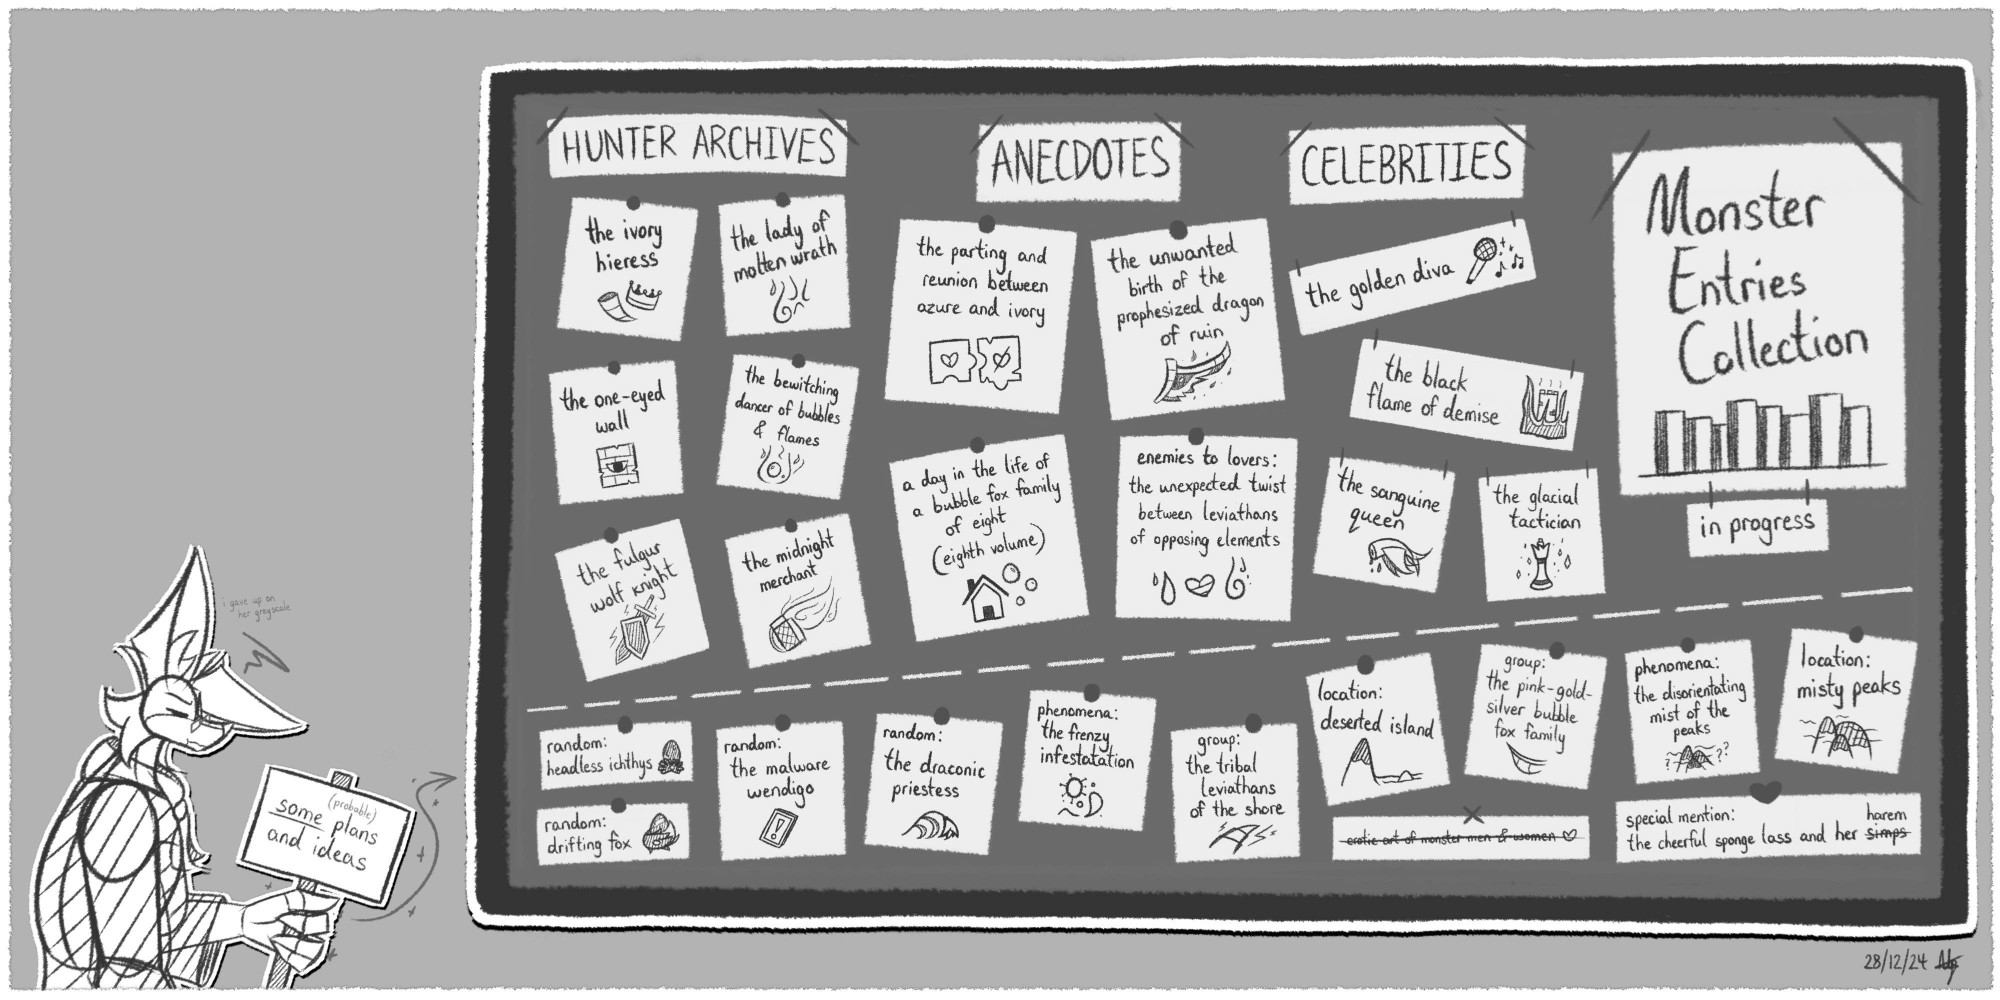 HUNTER ARCHIVES
the ivory
hieress
the lady of
molten wrath
the one-eyed
wall
the bewitching
dancer of bubbles
& flames
the fulgur
wolf knight
the midnight
merchant
ANECDOTES
the parting and
reunion between
azure and ivory
the unwanted
birth of the
prophesized dragon
of ruin
a day in the life of
a bubble fox family
of eight
(eighth volume)
enemies to lovers:
the unexpected twist
between leviathans
of opposing elements
CELEBRITIES
the golden diva
the black
flame of demise
the sanguine
queen
the glacial
tactician
Monster
Entries
Collection
in progress
random:
headless ichthys
random:
drifting fox
random:
the malware
wendigo
random:
the draconic
priestess
phenomena:
the frenzy
infestatation
group:
the tribal
leviathans
of the shore
location:
deserted island
group:
the pink-gold-
silver bubble
fox family
phenomena:
the disorientating
mist of the
peaks
?
??
location:
misty peaks
erotic art of monster men & women
special mention:
harem
the cheerful sponge lass and her simps
i gave up on
her greyscale
(probable)
some plans
and ideas
28/12/24